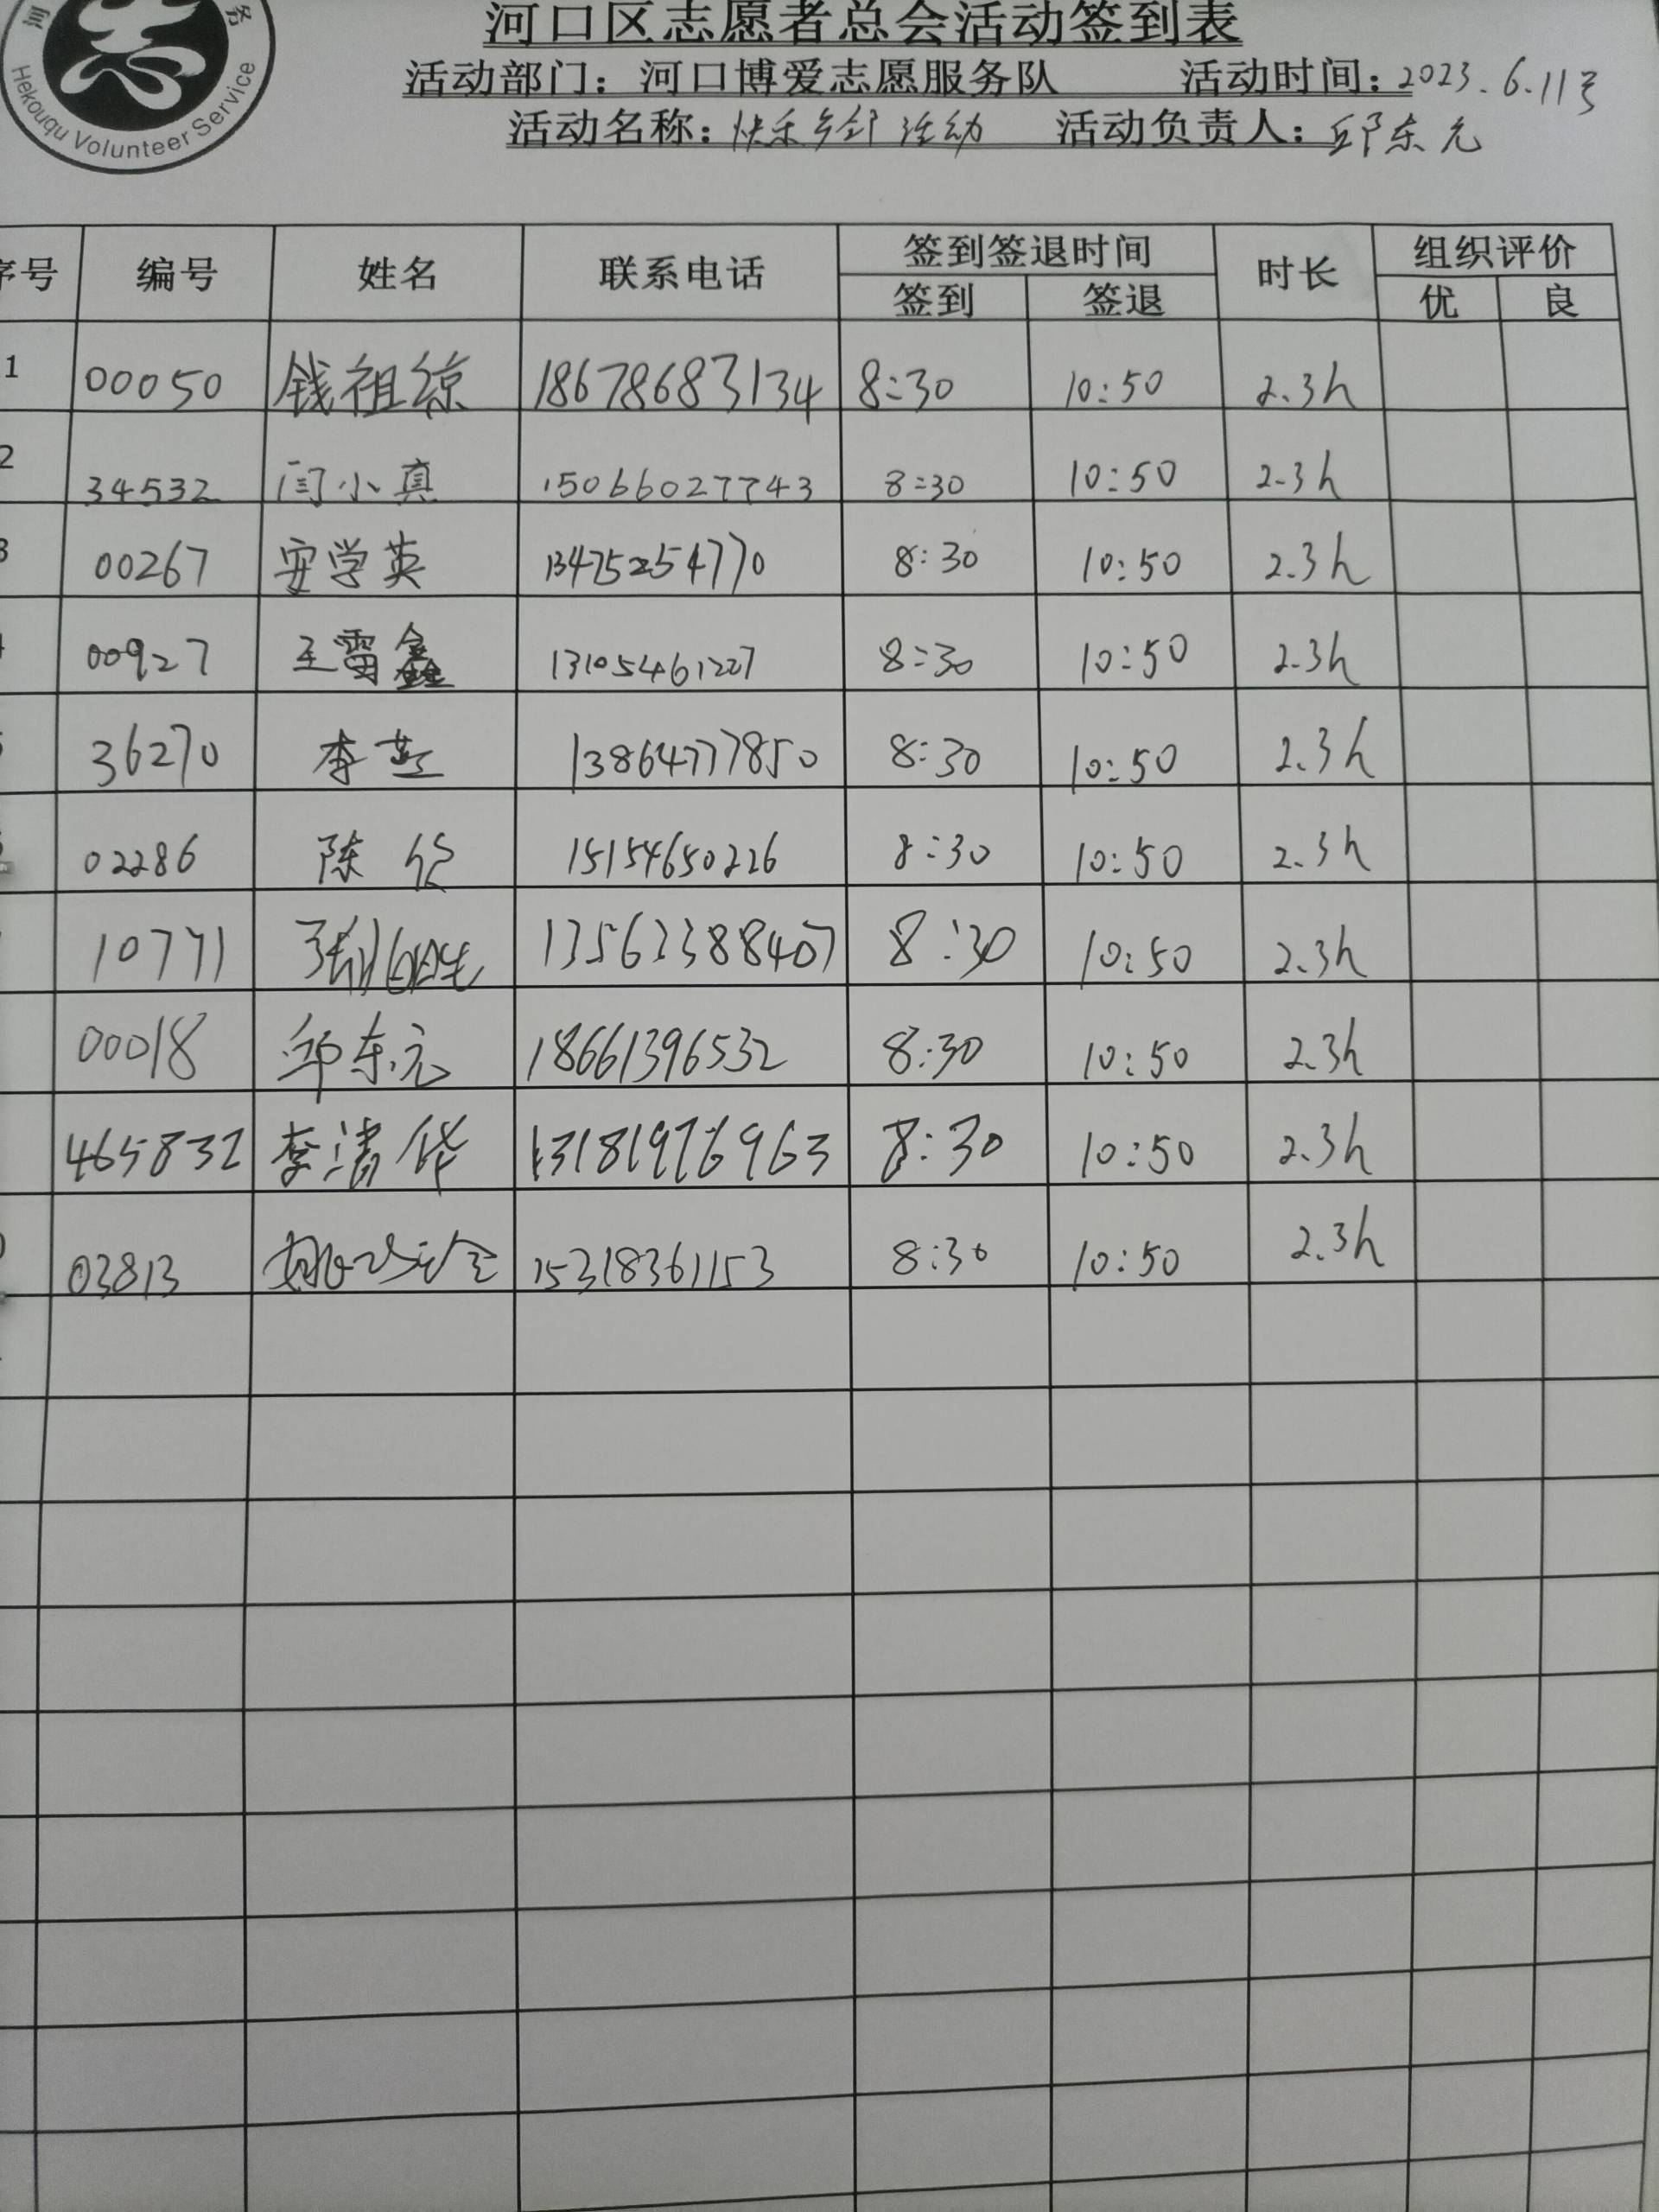 河 务
Hekouqu Volunteer Service
河口区志愿者总会活动签到表
活动部门：河口博爱志愿服务队 活动时间：2023.6.11号
活动名称：快乐乡邻活动 活动负责人：邱东元
序号 编号 姓名 联系电话 签到签退时间 时长 组织评价
签到 签退 优 良
1 00050 钱祖综 18678683134 8:30 10:50 2.3h
2 34532 闫小真 15066027743 8:30 10:50 2.3h
3 00267 安学英 13475254770 8:30 10:50 2.3h
00927 王雷鑫 13105461227 8:30 10:50 2.3h
36270 李 13864777850 8:30 10:50 2.3h
02286 陈 15154650226 8:30 10:50 2.3h
10771 张 13563388407 8:30 10:50 2.3h
00018 邱东元 18661396532 8:30 10:50 2.3h
465832 李清华 13181976963 8:30 10:50 2.3h
03813 15318361153 8:30 10:50 2.3h